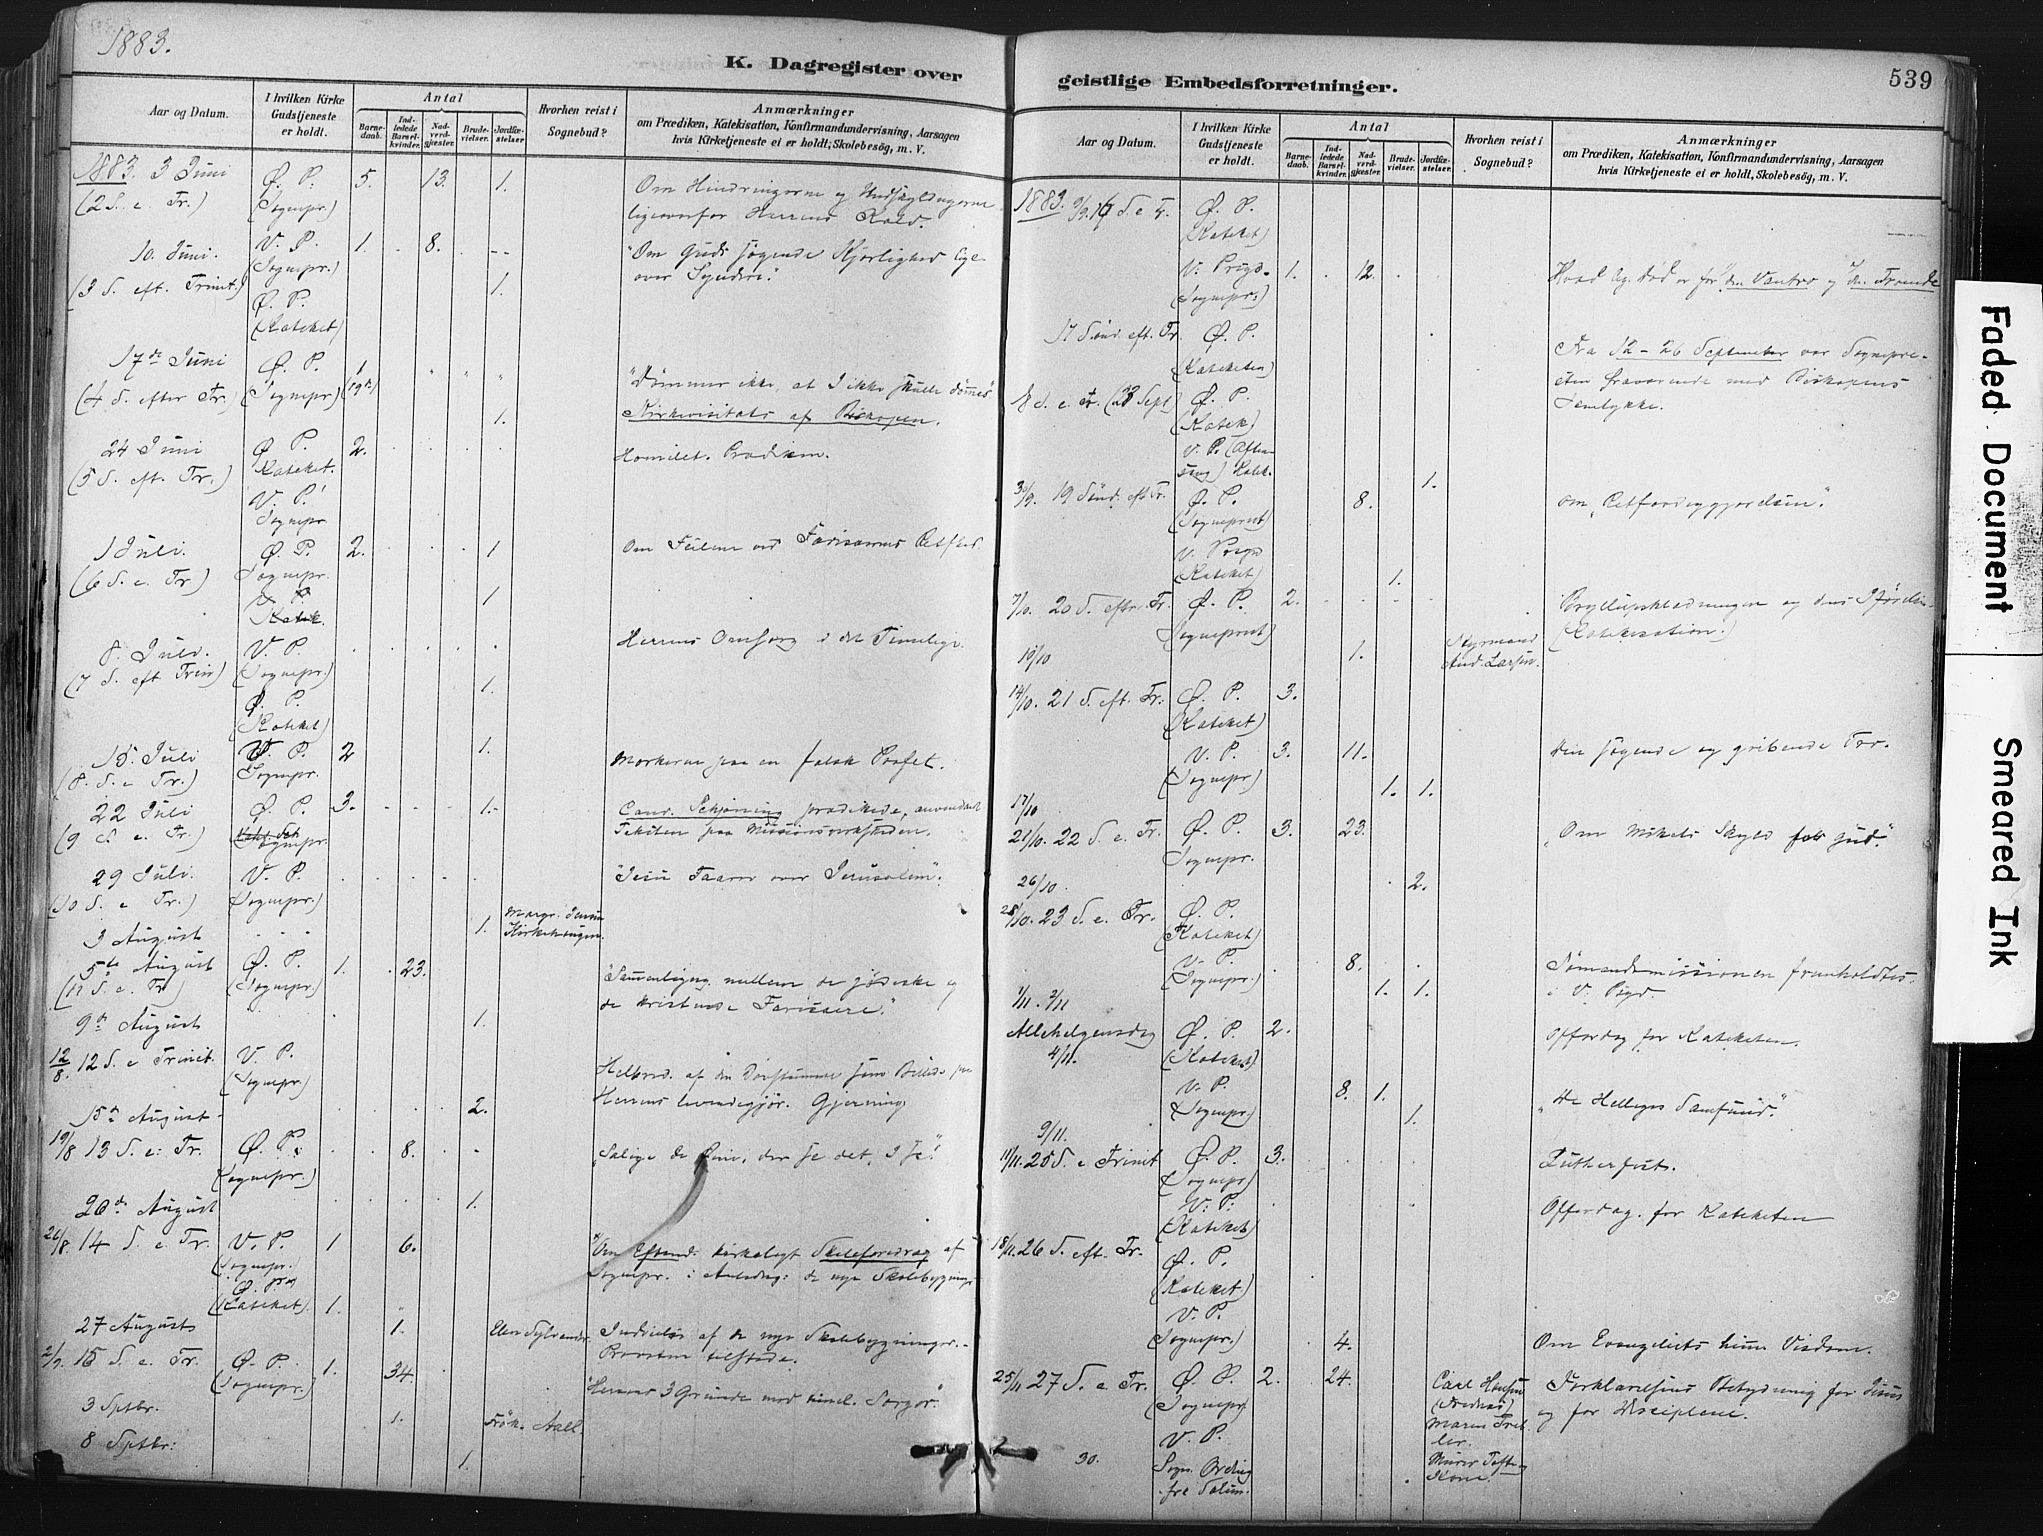 1883.
K. Dagregister over
Aar og Datum.
I hvilken Kirke Gudstjeneste er holdt.
Antal
Barnedaab.
Indledede Barselkvinder.
Nadverdgjæster.
Brudevielser.
Jordfæstelser
Hvorhen reist i Sognebud?
Anmærkninger
om Prædiken, Katekisation, Konfirmandundervisning, Aarsagen
hvis Kirketjeneste ei er holdt, Skolebesøg, m. V.
1883. 3 Juni Ø. P. 5. 13. 1. Om Hindringerne og Undskyldngerne
(2 S. e. Tr.) (Sognepr.) ligeoverfor Herrens Kald.
10. Juni. V. P. 1. 8. "Om Guds søgende Kjærlighed lige
(Sognepr.) over Syndere."
(3 S. eft. Trinit.) Ø. P. 1.
(Kateket)
17de Juni Ø. P. 1
(4 S. efter Tr.) (Sognepr) "Dømmer ikke, at I ikke skulle dømmes"
1. Kirkevisitats af Biskopen.
24 Juni Ø. P. 2. Homilet. Prædiken.
(5 S. eft. Tr.) Kateket.
V. P.
Sognepr.
1 Juli. Ø. P. 2. 1
(6 S. e. Tr) Sognepr.
V. P. 1
Katek.
8. Juli. V. P. Herrens Omsorg i det Timelige.
(7 S. eft Trin) (Sognepr.)
Ø. P. 1.
(Kateket)
15. Juli V. P. 2 1. Mærkerne paa en falsk Profet.
(8. S. e Tr.) Sognepr.
22 Juli Ø. P. 3. 1. Cand. Schjøning prædikede, anvendt
(9 S. e. Tr.) Sognepr. Teksten paa Missionsvirksheden.
29 Juli. V. P. "Jesu Taarer over Jerusalem".
(10 S. e Tr.) (Sognepr.)
3 August 1. Margr. Jensen
Kirkehaugen.
5te August Ø. P. 1. 23.
(11 S. e. Tr) (Sognepr.) "Sammenligng mellem de jødiske og
de kristnede Farisæere."
9de August 1.
12/8. 12 S. e Trinit. V. P.
(Sognepr.) Helbred. af den Døvstumme som Billede paa
15de August. 2. Herrens levendegjør. Gjerning
19/8 13 S. e. Tr. Ø. P. 8. "Salige de Øine, der se det, I se."
(Sognepr.)
20de August 1.
26/8. 14 S. e Tr. V. P. 1 6. Om Efterm. kirkeligt Skoleforedrag af
(Sognepr. Sognepr. i Anledng: de nye Skolebygning
Ø. P.
(Kateket). 1.
27 August 1. Elen Sylvander Indvielse af de nye Skolebygninger.
2/9. 15 S. e. Tr. Ø. P. 1. 34. Provsten tilstede.
(Sognepr.) "Herrens 3 Grunde mod timel. Sorger".
3 Sptbr. 1. Frøk. Aall.
8 Sptbr: 1.
geistlige Embedsforretninger.
539
Aar og Datum.
I hvilken Kirke Gudstjeneste er holdt.
Antal
Barnedaab.
Indledede Barselkvinder.
Nadverdgjæster.
Brudevielser.
Jordfæstelser.
Hvorhen reist i Sognebud?
Anmærkninger
om Prædiken, Katekisation, Konfirmandundervisning, Aarsagen
hvis Kirketjeneste ei er holdt, Skolebesøg, m. V.
1883. 9/9. 16 S. e Tr. Ø. P.
(Kateket)
V. Prgd. 1. 12. Hvad lg. Død er for den Vantro og den Troende
(Sognepr.)
17 Sønd. eft. Tr. Ø. P.
(Kateketen) Fra 12-26 September var Sognepresten
fraværende med Biskopens
18 S. e. Tr. (23 Sept) Ø. P. Samtykke.
(Katek)
V. P. (Aftensang) Katek. 1.
30/9. 19 Sønd. eft Tr. Ø. P. 8. om "Retfærdiggjørelsen".
(Sognepræst)
V. Prgd
(Kateket) 1.
7/10. 20 S. efter. Tr. Ø. P. 2. Bryllupsklædningen og dens Iførelse
(Sognepræst) (Katekisation.)
10/10 1. Styrmand
And. Larsen.
14/10. 21 S. eft. Tr. Ø. P. 3.
(Kateket)
V. P. 3. 11. Den søgende og gribende Tro.
(Sognepr)
17/10 1. 1.
21/10. 22 S. e. Tr. Ø. P. 3. 23. "Om Menskets Skyld for Gud."
Sognepr.
26/10. 2.
28/10. 23 S. e. Tr. Ø. P.
(Kateket)
V. P. 8. Sømandsmissionen fremholdtes
(Sognepr.) i V. Prgd.
1/11. 2/11 1. 1.
Allehelgensdag Ø. P. 2. Offerdag for Kateketen.
4/11. (Kateket)
V. P. 8. 1.
(Sognepr.) 1. "De Helliges Samfund."
9/11.
11/11. 25 S. e Trinit Ø. P. 3. Lutherfest.
(Sognepr)
V. P. Offerdag. for Kateketen
(Kateket)
18/11. 26 S. eft. Tr. Ø. P.
(Kateket)
V. P.
(Sognepr.) 4. Om Evangeliets himm Visdom.
25/11 27 S. e Tr. Ø. P. 2. 24. Carl Hansen Forklarelsens Betydning for Jesus
(Sognepr og for Disciplene.
V. P. Maren
30. Sogn. Ording Murer Tofte
fra Solum. Kone.
Faded Document
Smeared Ink